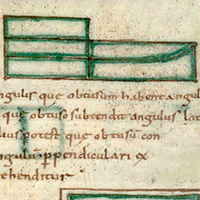 ngulis que obtusum habent angul
que obtuso subtendit angulus lat
lius potest que obtusū con
ngulū ppendiculari ex
ehenditur